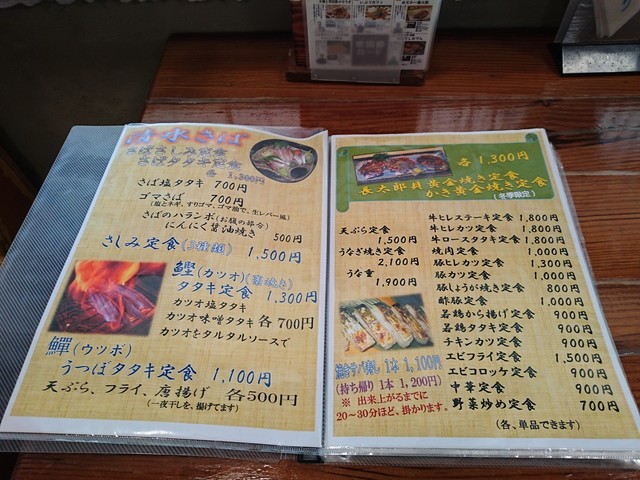 清水さば
さばタタキ定食
各 1,300円
さば塩タタキ 700円
ゴマさば 700円
(塩とネギ、すりゴマ、ゴマ油で、生レバー風)
さばのハランボ(お腹の部分)
にんにく醤油焼き 500円
さしみ定食(3種類) 1,500円
鰹(カツオ)(藁焼き)
タタキ定食 1,300円
カツオ塩タタキ
カツオ味噌タタキ 各700円
カツオをタルタルソースで
鱓(ウツボ)
うつぼタタキ定食 1,100円
天ぷら、フライ、唐揚げ 各500円
(一夜干しを、揚げてます)
各 1,300円
長太郎貝黄金焼き定食
かき黄金焼き定食
(冬季限定)
天ぷら定食
1,500円
うなぎ焼き定食
2,100円
うな重
1,900円
1本 1,100円
(持ち帰り 1本 1,200円)
※ 出来上がるまでに
20～30分ほど、掛かります。
牛ヒレステーキ定食 1,800円
牛ヒレカツ定食 1,800円
牛ロースタタキ定食 1,800円
焼肉定食 1,000円
豚ヒレカツ定食 1,300円
豚カツ定食 1,000円
豚しょうが焼き定食 800円
酢豚定食 1,000円
若鶏から揚げ定食 900円
若鶏タタキ定食 900円
チキンカツ定食 900円
エビフライ定食 1,500円
エビコロッケ定食 900円
中華定食 900円
野菜炒め定食 700円
(各、単品できます)